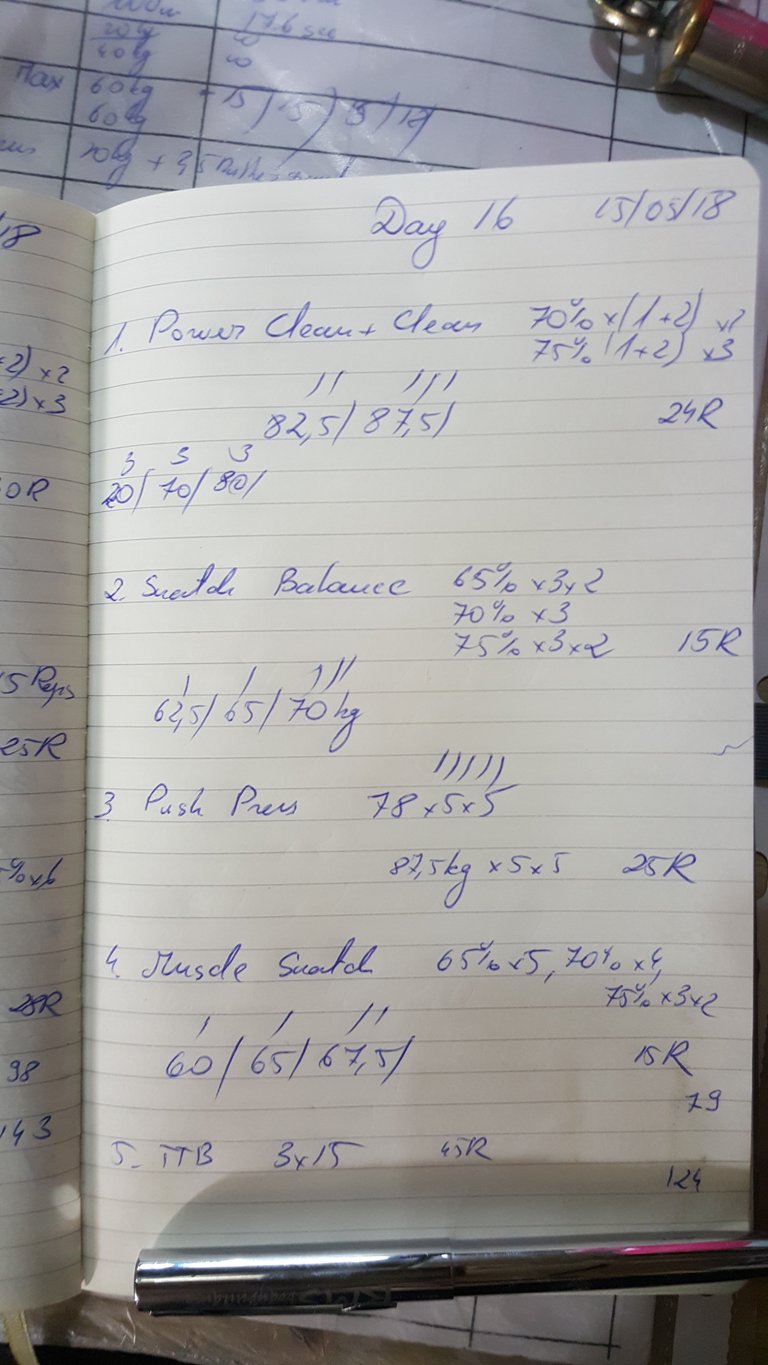 20kg
40kg
Max 60kg
60kg
Day 16 15/05/18
1. Power Clean + Clean 70% x (1+2) x2
75% (1+2) x3
82,5/ 87,5/ 24R
3 3 3
20/ 70/ 80/
2. Snatch Balance 65% x3x2
70% x3
75% x3x2 15R
62,5/ 65/ 70kg
3. Push Press 78 x5x5
87,5kg x5x5 25R
4. Muscle Snatch 65% x5, 70% x4,
75% x3x2
60/ 65/ 67,5/
15R
79
5. TTB 3x15 45R
124
/18
+2) x2
+2) x3
0R
5 Reps
25R
% x6
28R
98
143